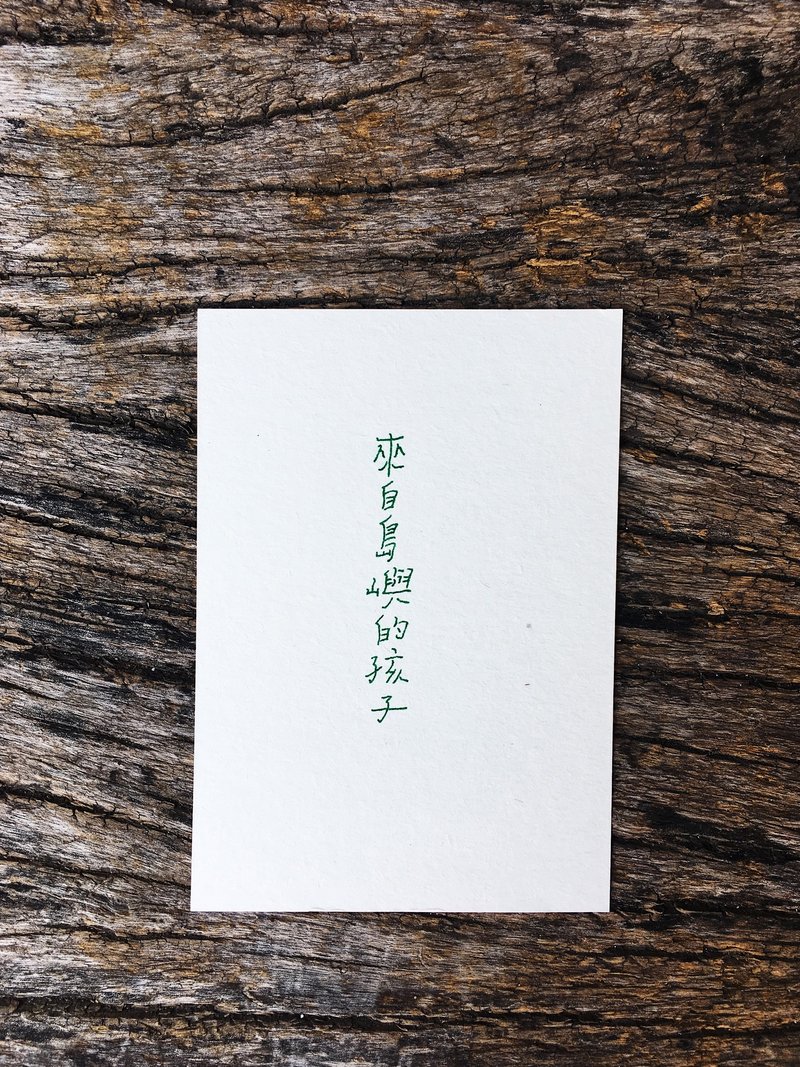 來自島嶼的孩子